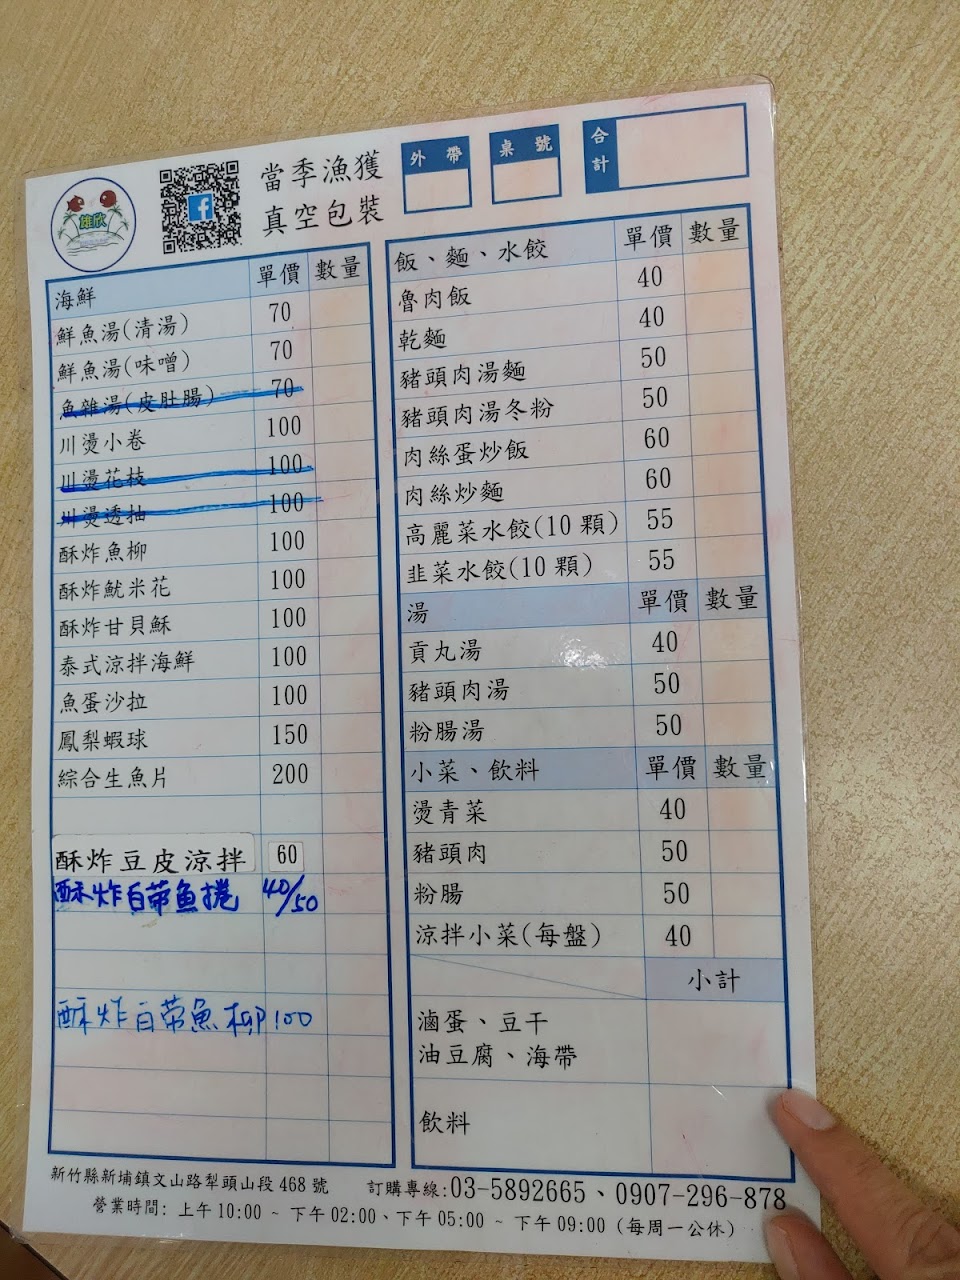 雄欣
當季漁獲
真空包裝
外帶
桌號
合計
海鮮 單價 數量
鮮魚湯(清湯) 70
鮮魚湯(味噌) 70
魚雜湯(皮肚腸) 70
川燙小卷 100
川燙花枝 100
川燙透抽 100
酥炸魚柳 100
酥炸魷米花 100
酥炸甘貝酥 100
泰式涼拌海鮮 100
魚蛋沙拉 100
鳳梨蝦球 150
綜合生魚片 200
酥炸豆皮涼拌 60
酥炸白帶魚捲 40/50
酥炸白帶魚柳 100
飯、麵、水餃 單價 數量
魯肉飯 40
乾麵 40
豬頭肉湯麵 50
豬頭肉湯冬粉 50
肉絲蛋炒飯 60
肉絲炒麵 60
高麗菜水餃(10 顆) 55
韭菜水餃(10 顆) 55
湯 單價 數量
貢丸湯 40
豬頭肉湯 50
粉腸湯 50
小菜、飲料 單價 數量
燙青菜 40
豬頭肉 50
粉腸 50
涼拌小菜(每盤) 40
小計
滷蛋、豆干
油豆腐、海帶
飲料
新竹縣新埔鎮文山路犁頭山段 468 號 訂購專線:03-5892665、0907-296-878
營業時間: 上午 10:00 ~ 下午 02:00、下午 05:00 ~ 下午 09:00 (每周一公休)